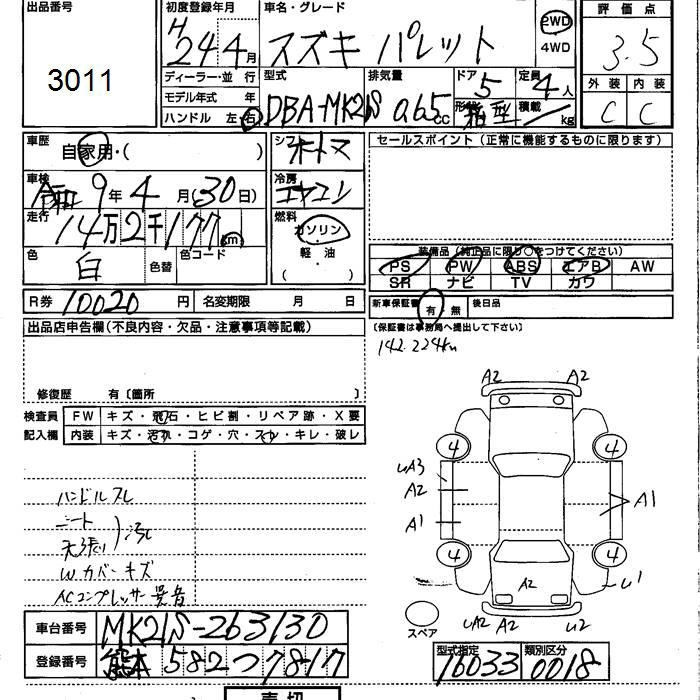 出品番号
3011
初度登録年月
H24年4月
車名・グレード
スズキ パレット
2WD
4WD
評価点
3.5
外装 内装
C C
ディーラー・並行
モデル年式 年
ハンドル 左・右
型式
DBA-MK21S
排気量
0.65cc
ドア
5
形状
箱型
定員
4人
積載
kg
車歴
自家用・( )
車検
令和9年4月(30日)
走行
14万2千177km
色
白
色替
色コード
シフト
オートマ
冷房
エアコン
燃料
ガソリン
・
軽油
( )
セールスポイント(正常に機能するものに限ります)
装備品(純正品に限り○をつけてください)
PS PW ABS エアB AW
SR ナビ TV カワ
R券 10020円 名変期限 月 日
新車保証書 有・無 後日品
(保証書は事務局へ提出して下さい)
142.224km
出品店申告欄(不良内容・欠品・注意事項等記載)
修復歴 有〔箇所 〕
検査員
記入欄
FW キズ・飛石・ヒビ割・リペア跡・X要
内装 キズ・汚れ・コゲ・穴・スレ・キレ・破レ
ハンドルスレ
シート
天張り )汚れ
Wカバーキズ
ACコンプレッサー異音
A2 A2
4 4
UA3
A2
A1
A1
4 4
A2
U1
UA2 A2 U2
スペア
車台番号 MK21S-263130
登録番号 熊本 582 つ 7817
型式指定 類別区分
16033 0018
売切